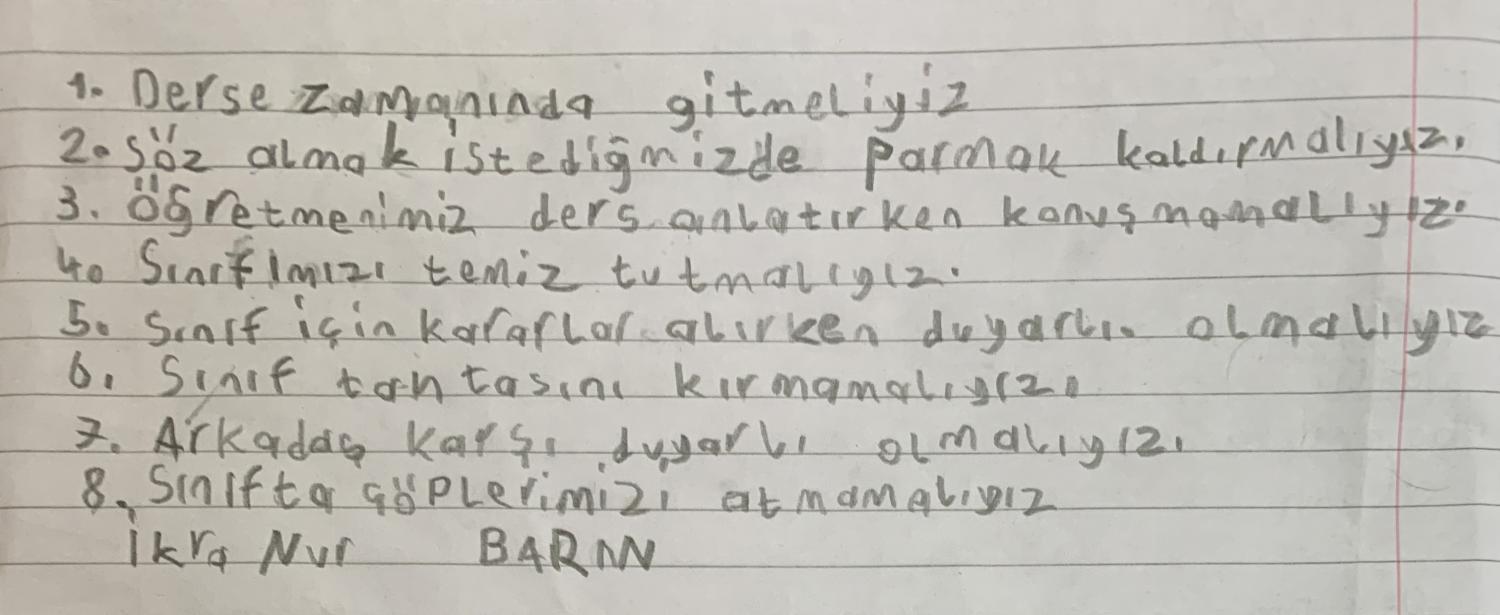 1. Derse zamanında gitmeliyiz
2. Söz almak istediğmizde parmak kaldırmalıyız.
3. Öğretmenimiz ders anlatırken konuşmamalıyız.
4. Sınıfımızı temiz tutmalıyız.
5. Sınıf için kararlar alırken duyarlı olmalıyız
6. Sınıf tahtasını kırmamalıyız.
7. Arkadaş karşı duyarlı olmalıyız.
8. Sınıfta çöplerimizi atmamalıyız
İkra Nur